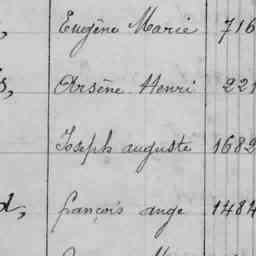 Eugène Marie 716
s, Arsène Henri 221
Joseph auguste 1682
d, françois ange 1484